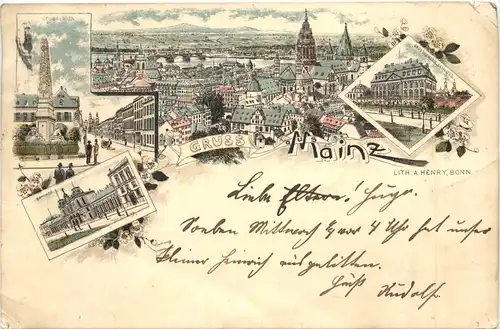 GRUSS aus Mainz
LITH. A. HENRY, BONN
Liebe Eltern! Hugo.
Soeben Mittwoch ¼ vor 4 Uhr hat unser
kleiner Heinrich ausgelitten.
Gruß Rudolf.